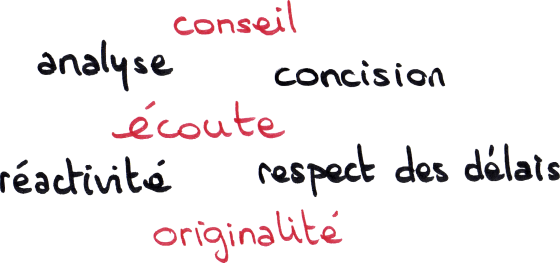 conseil
analyse
concision
écoute
réactivité
respect des délais
originalité